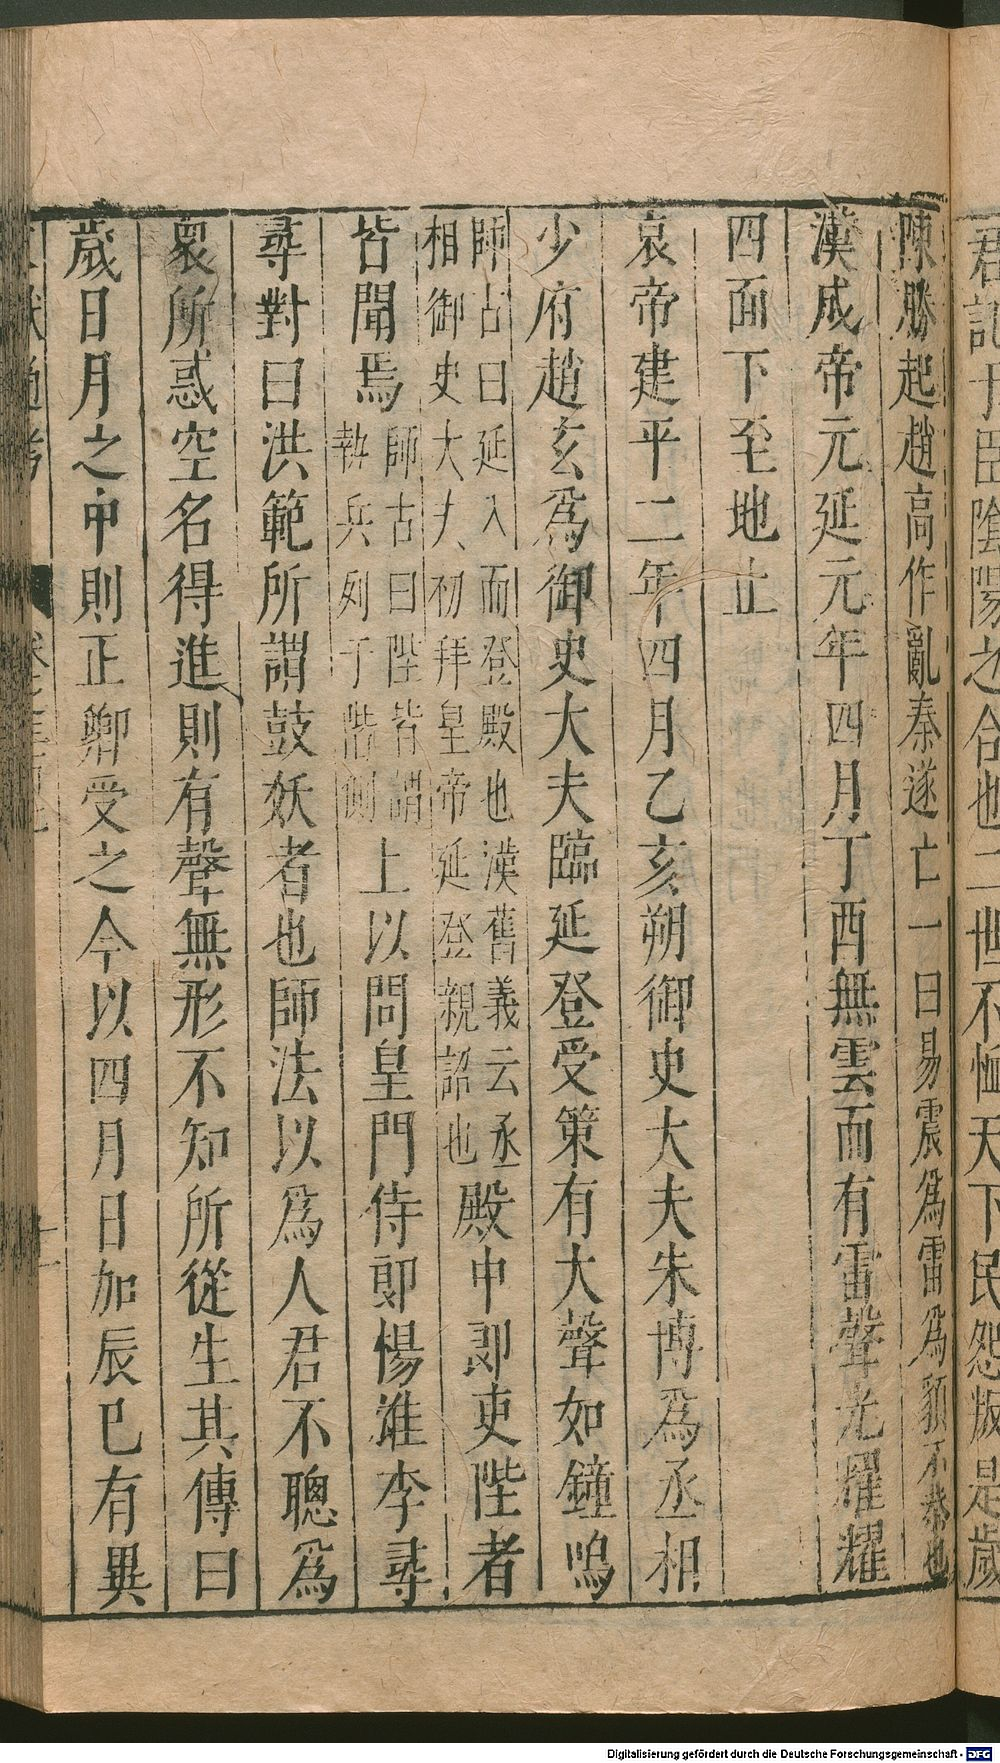 君記于臣陰陽之合也二世不恤天下民怨叛是歲
陳勝起趙高作亂秦遂亡一曰易震爲雷爲貌不恭也
漢成帝元延元年四月丁酉無雲而有雷聲光耀耀
四面下至地止
哀帝建平二年四月乙亥朔御史大夫朱博爲丞相
少府趙玄爲御史大夫臨延登受策有大聲如鐘鳴
師古曰延入而登殿也漢舊義云丞
相御史大夫初拜皇帝延登親詔也
殿中郎吏陛者
皆聞焉
師古曰陛皆謂
執兵列于階側
上以問皇門侍郎楊雄李尋
尋對曰洪範所謂鼓妖者也師法以爲人君不聰爲
衆所惑空名得進則有聲無形不知所從生其傳曰
歲日月之中則正卿受之今以四月日加辰巳有異
Digitalisierung gefördert durch die Deutsche Forschungsgemeinschaft - DFG